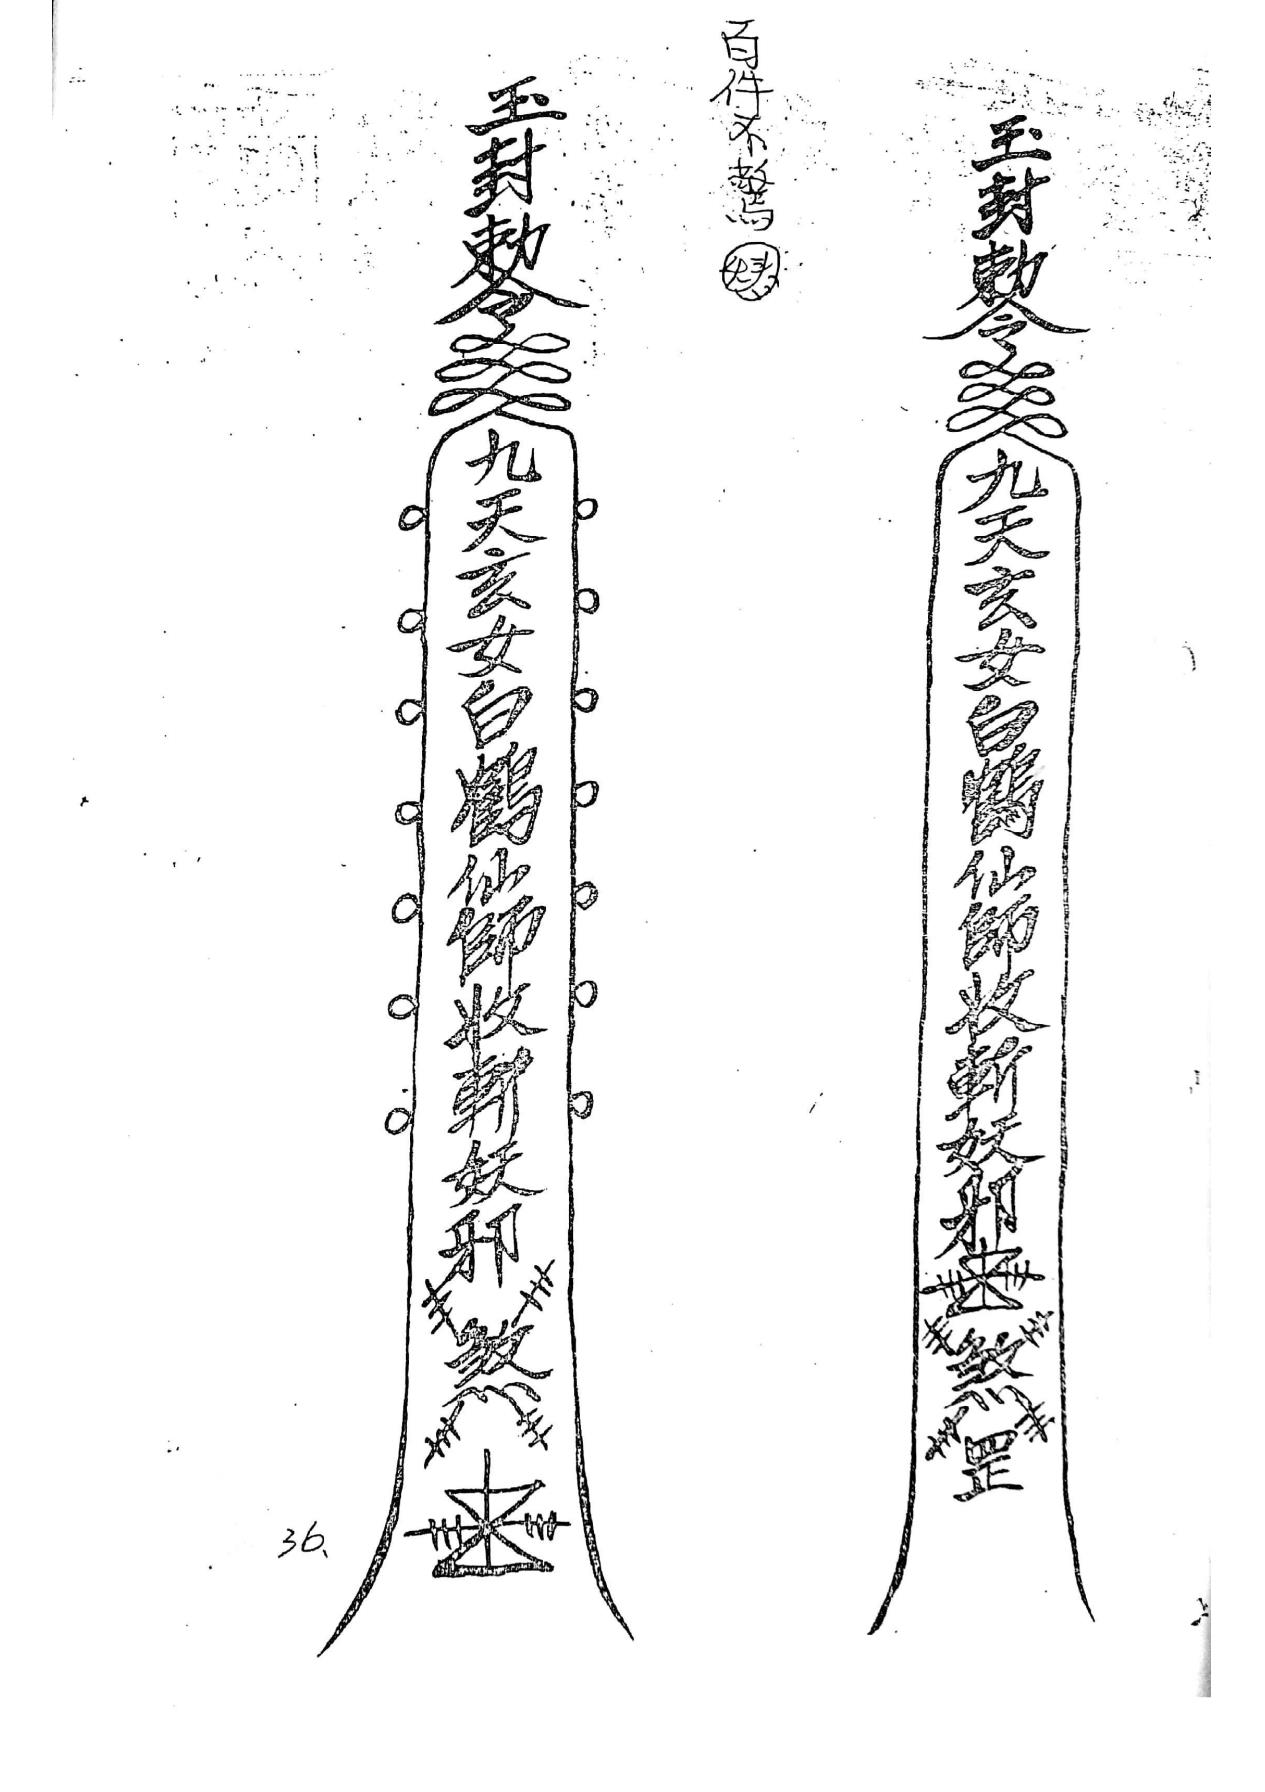 玉封勅令
九天玄女白鶴仙師收斬妖邪煞罡
百件不驚
玉封勅令
九天玄女白鶴仙師收斬妖邪煞
36、